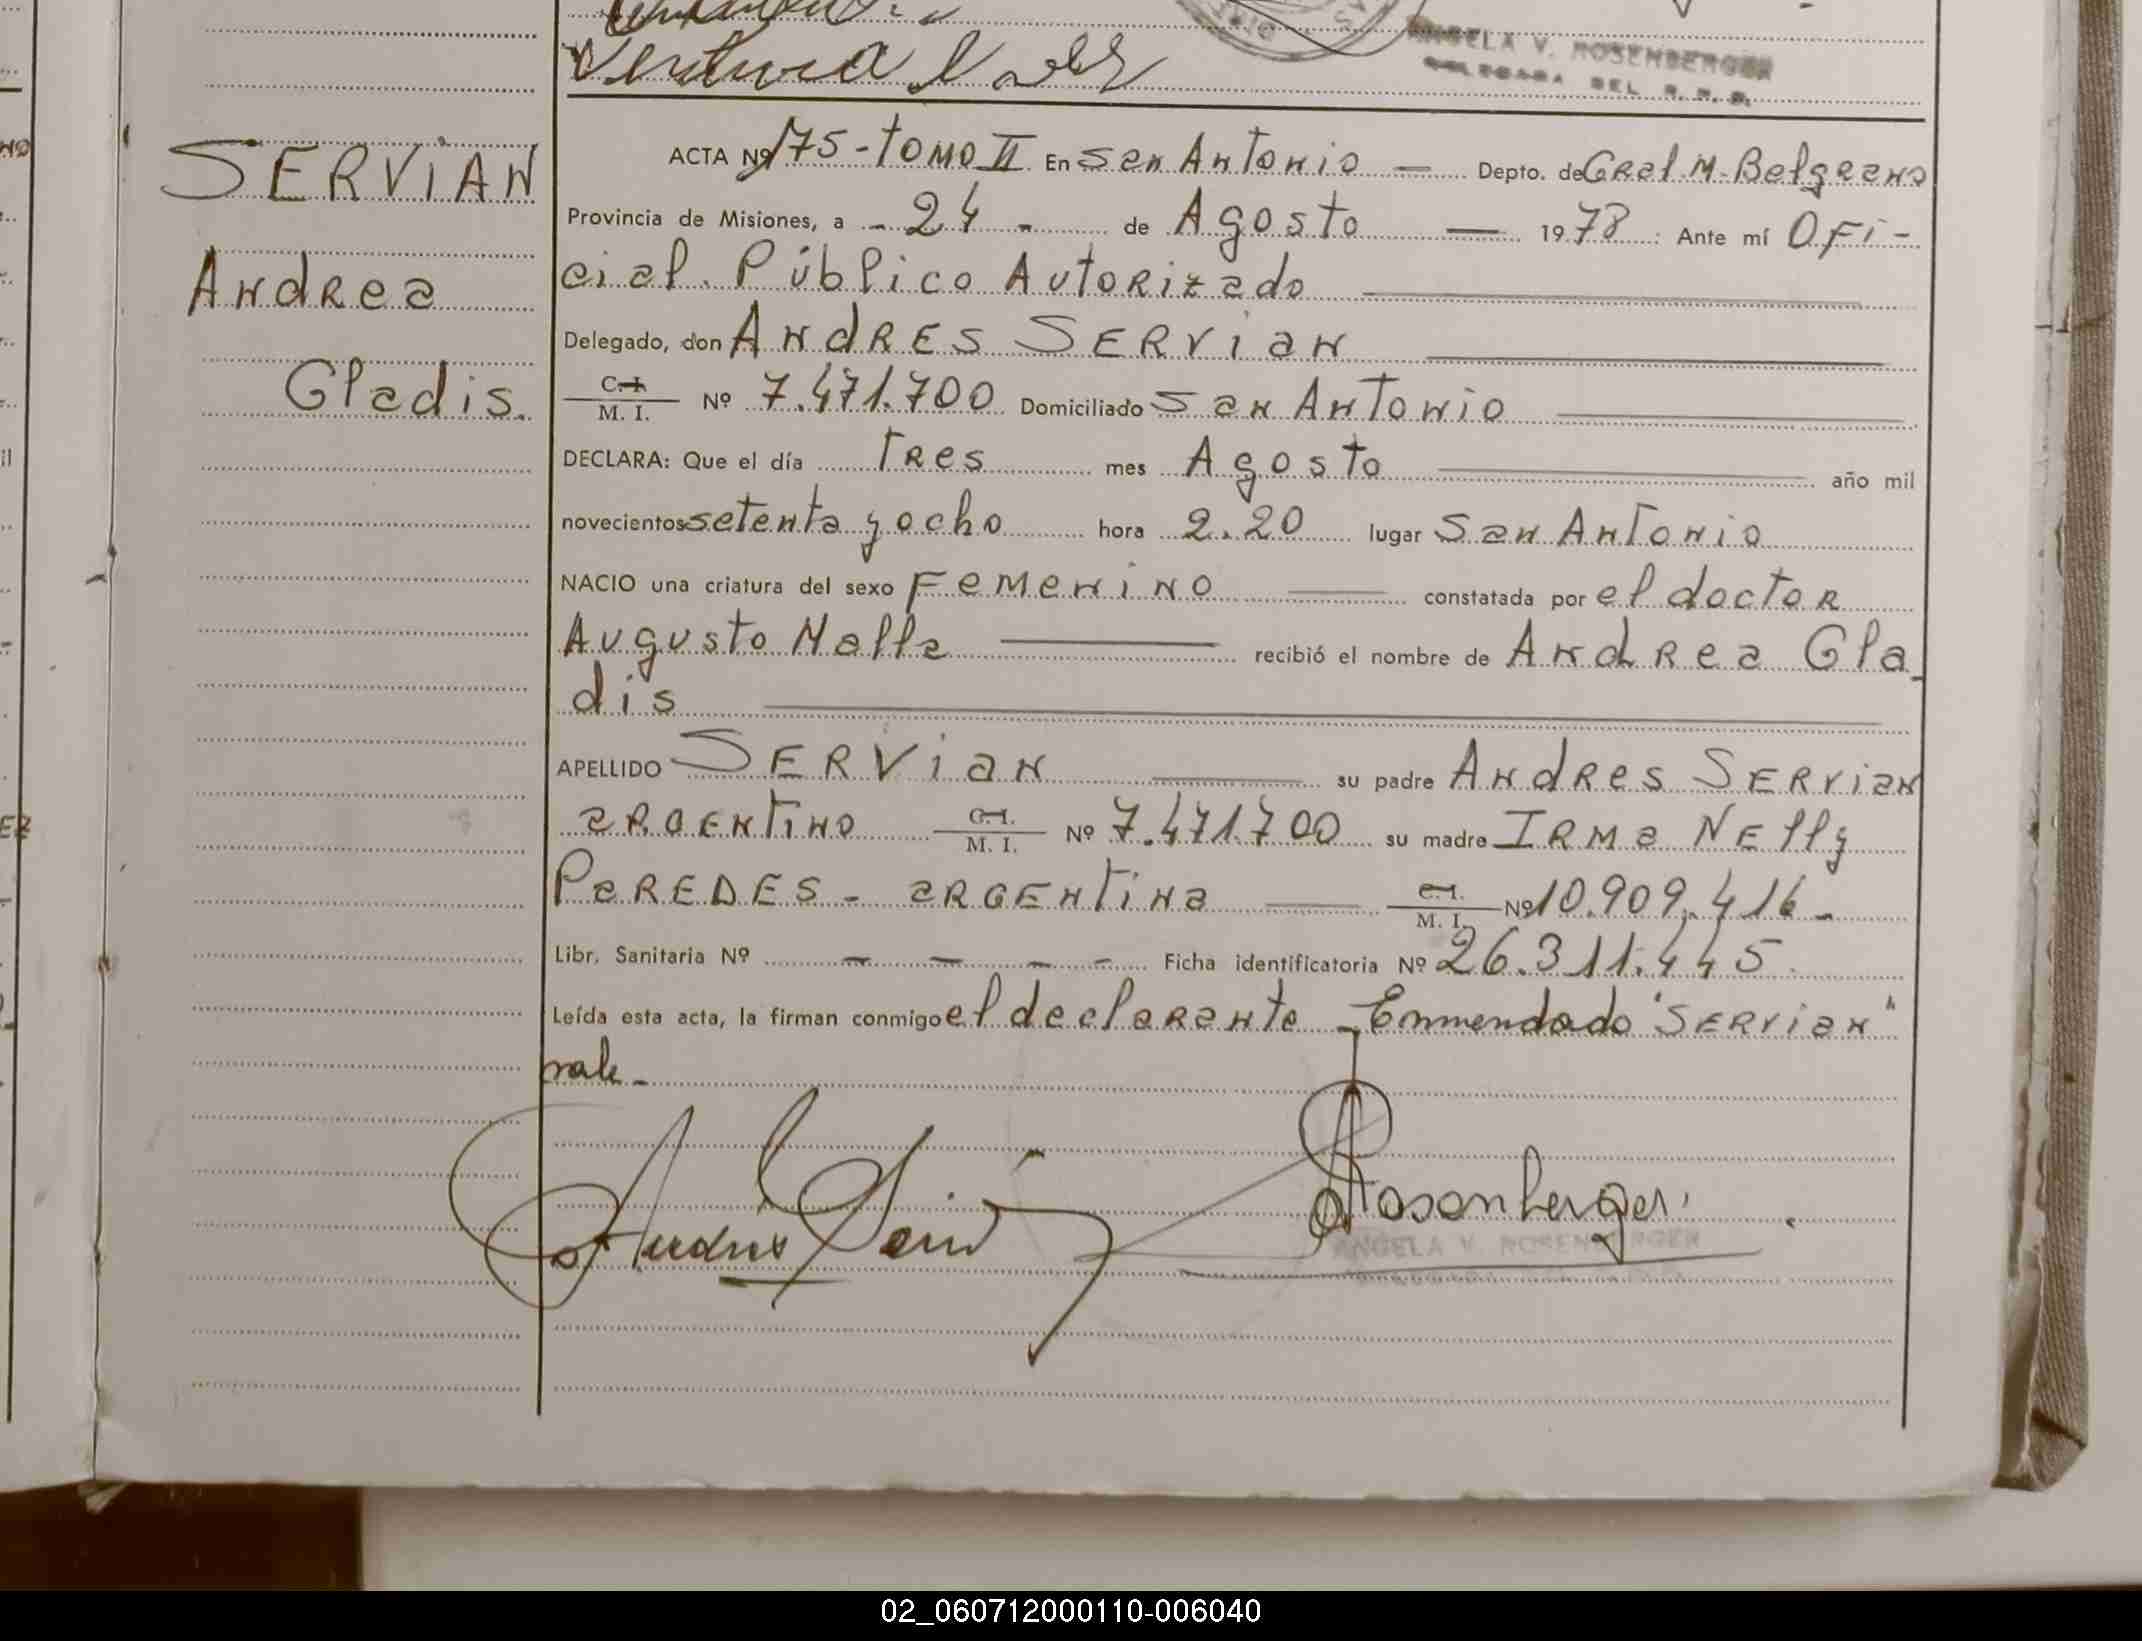 Ventura
ANGELA V. ROSENBERGER
DELEGADA DEL R. P.
SERVIAN
Andrea
Gladis.
ACTA Nº 175 - TOMO II En San Antonio — Depto. de Gral. M. Belgrano
Provincia de Misiones, a - 24 - de Agosto — 1978 Ante mí Ofi-
cial Público Autorizado
Delegado, don Andres Servian
C. I. / M. I. Nº 7.471.700 Domiciliado San Antonio
DECLARA: Que el día Tres mes Agosto año mil
novecientos setenta y ocho hora 2.20 lugar San Antonio
NACIO una criatura del sexo Femenino constatada por el doctor
Augusto recibió el nombre de Andrea Gla
dis
APELLIDO Servian su padre Andres Servian
argentino C. I. / M. I. Nº 7.471.700 su madre Irma Nelly
Paredes - argentina C. I. / M. I. Nº 10.909.416 -
Libr. Sanitaria Nº - - - - Ficha identificatoria Nº 26.311.445
Leída esta acta, la firman conmigo el declarante - Enmendado "Servian"
vale -
Andres Servian
Rosenberger
ANGELA V. ROSENBERGER
02_060712000110-006040